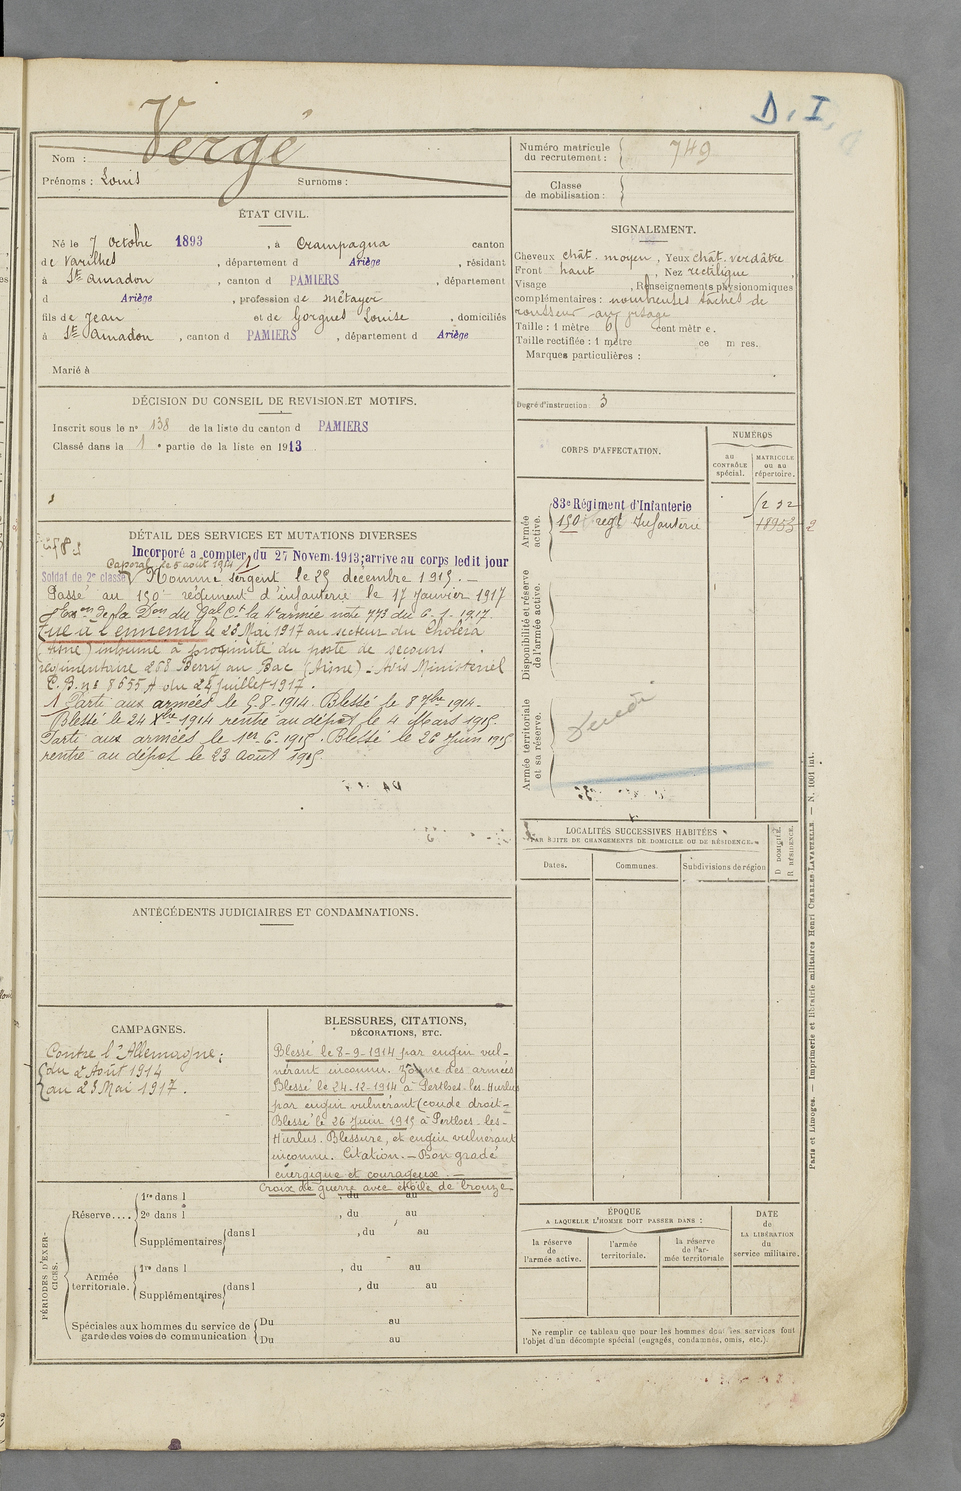 D. I.
Vergé
Nom :
Prénoms : Louis Surnoms :
Numéro matricule du recrutement : 749
Classe de mobilisation :
ÉTAT CIVIL.
Né le 7 Octobre 1893, à Crampagna canton
de Varilhes, département d Ariège, résidant
à St Amadou, canton d PAMIERS, département
d Ariège, profession de métayer
fils de Jean et de Gorgues Louise, domiciliés
à St Amadou, canton d PAMIERS, département d Ariège
Marié à
SIGNALEMENT.
Cheveux chât. moyen, Yeux chât. verdâtre
Front haut, Nez rectiligne
Visage, Renseignements physionomiques
complémentaires : nombreuses taches de
rousseur au visage
Taille : 1 mètre 6 centimètre.
Taille rectifiée : 1 mètre ce m res.
Marques particulières :
Degré d'instruction : 3
DÉCISION DU CONSEIL DE REVISION ET MOTIFS.
Inscrit sous le n° 138 de la liste du canton d PAMIERS
Classé dans la 1e partie de la liste en 1913
CORPS D'AFFECTATION.
NUMÉROS
au CONTRÔLE spécial.
MATRICULE ou au répertoire.
Armée active.
83e Régiment d'Infanterie
150e regt Infanterie
Disponibilité et réserve de l'armée active.
Armée territoriale et sa réserve.
DÉTAIL DES SERVICES ET MUTATIONS DIVERSES
Incorporé à compter du 27 Novem. 1913; arrive au corps ledit jour
Caporal le 5 août 1914
Soldat de 2e classe Nomme sergent le 29 décembre 1915. —
Passé au 150e régiment d'infanterie le 17 Janvier 1917
Exon de la Don du Gal Ct la 4e armée note 773 du 6-1-1917.
Tué à l'ennemi le 23 Mai 1917 au secteur du Choléra
(Aisne) inhumé à proximité du poste de secours
régimentaire 268 Berry au Bac (Aisne) - Avis Ministériel
C.B. n° 8655 A du 24 Juillet 1917.
1 Parti aux armées le 5-8-1914. Blessé le 8 7bre 1914-
Blessé le 24 Xbre 1914 rentré au dépôt le 4 Mars 1915.
Parti aux armées le 1er 6.1915. Blessé le 26 Juin 1915
rentré au dépôt le 23 août 1915
LOCALITÉS SUCCESSIVES HABITÉES
PAR SUITE DE CHANGEMENTS DE DOMICILE OU DE RÉSIDENCE.
Dates.
Communes.
Subdivisions de région
D DOMICILE.
R RÉSIDENCE.
ANTÉCÉDENTS JUDICIAIRES ET CONDAMNATIONS.
CAMPAGNES.
Contre l'Allemagne :
du 2 Août 1914
au 23 Mai 1917.
BLESSURES, CITATIONS,
DÉCORATIONS, ETC.
Blessé le 8-9-1914 par engin vul-
nérant inconnu. Zone des armées
Blessé le 24-12-1914 à Perthes-les-Hurlus
par engin vulnérant (coude droit -
Blessé le 26 Juin 1915 à Perthes-les-
Hurlus. Blessure, et engin vulnérant
inconnu. Citation. — Bon gradé
énergique et courageux. —
Croix de guerre avec étoile de bronze
PÉRIODES D'EXERCICES.
Réserve....
1re dans l , du au
2e dans l , du au
Supplémentaires dans l , du au
Armée territoriale.
1re dans l , du au
Supplémentaires dans l , du au
Spéciales aux hommes du service de
garde des voies de communication
Du au
Du au
ÉPOQUE
A LAQUELLE L'HOMME DOIT PASSER DANS :
la réserve de l'armée active.
l'armée territoriale.
la réserve de l'armée territoriale
DATE de LA LIBÉRATION du service militaire.
Ne remplir ce tableau que pour les hommes dont les services font
l'objet d'un décompte spécial (engagés, condamnés, omis, etc.).
Paris et Limoges. — Imprimerie et librairie militaires Henri CHARLES-LAVAUZELLE — N. 1001 int.